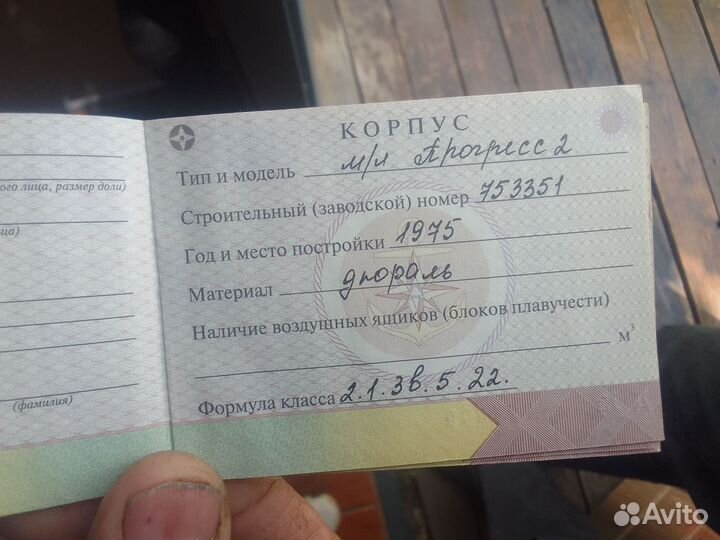 КОРПУС
Тип и модель м/л Прогресс 2
Строительный (заводской) номер 753351
Год и место постройки 1975
Материал дюраль
Наличие воздушных ящиков (блоков плавучести)
м³
Формула класса 2.1.3в.5.22.
ого лица, размер доли)
ца)
(фамилия)
Avito